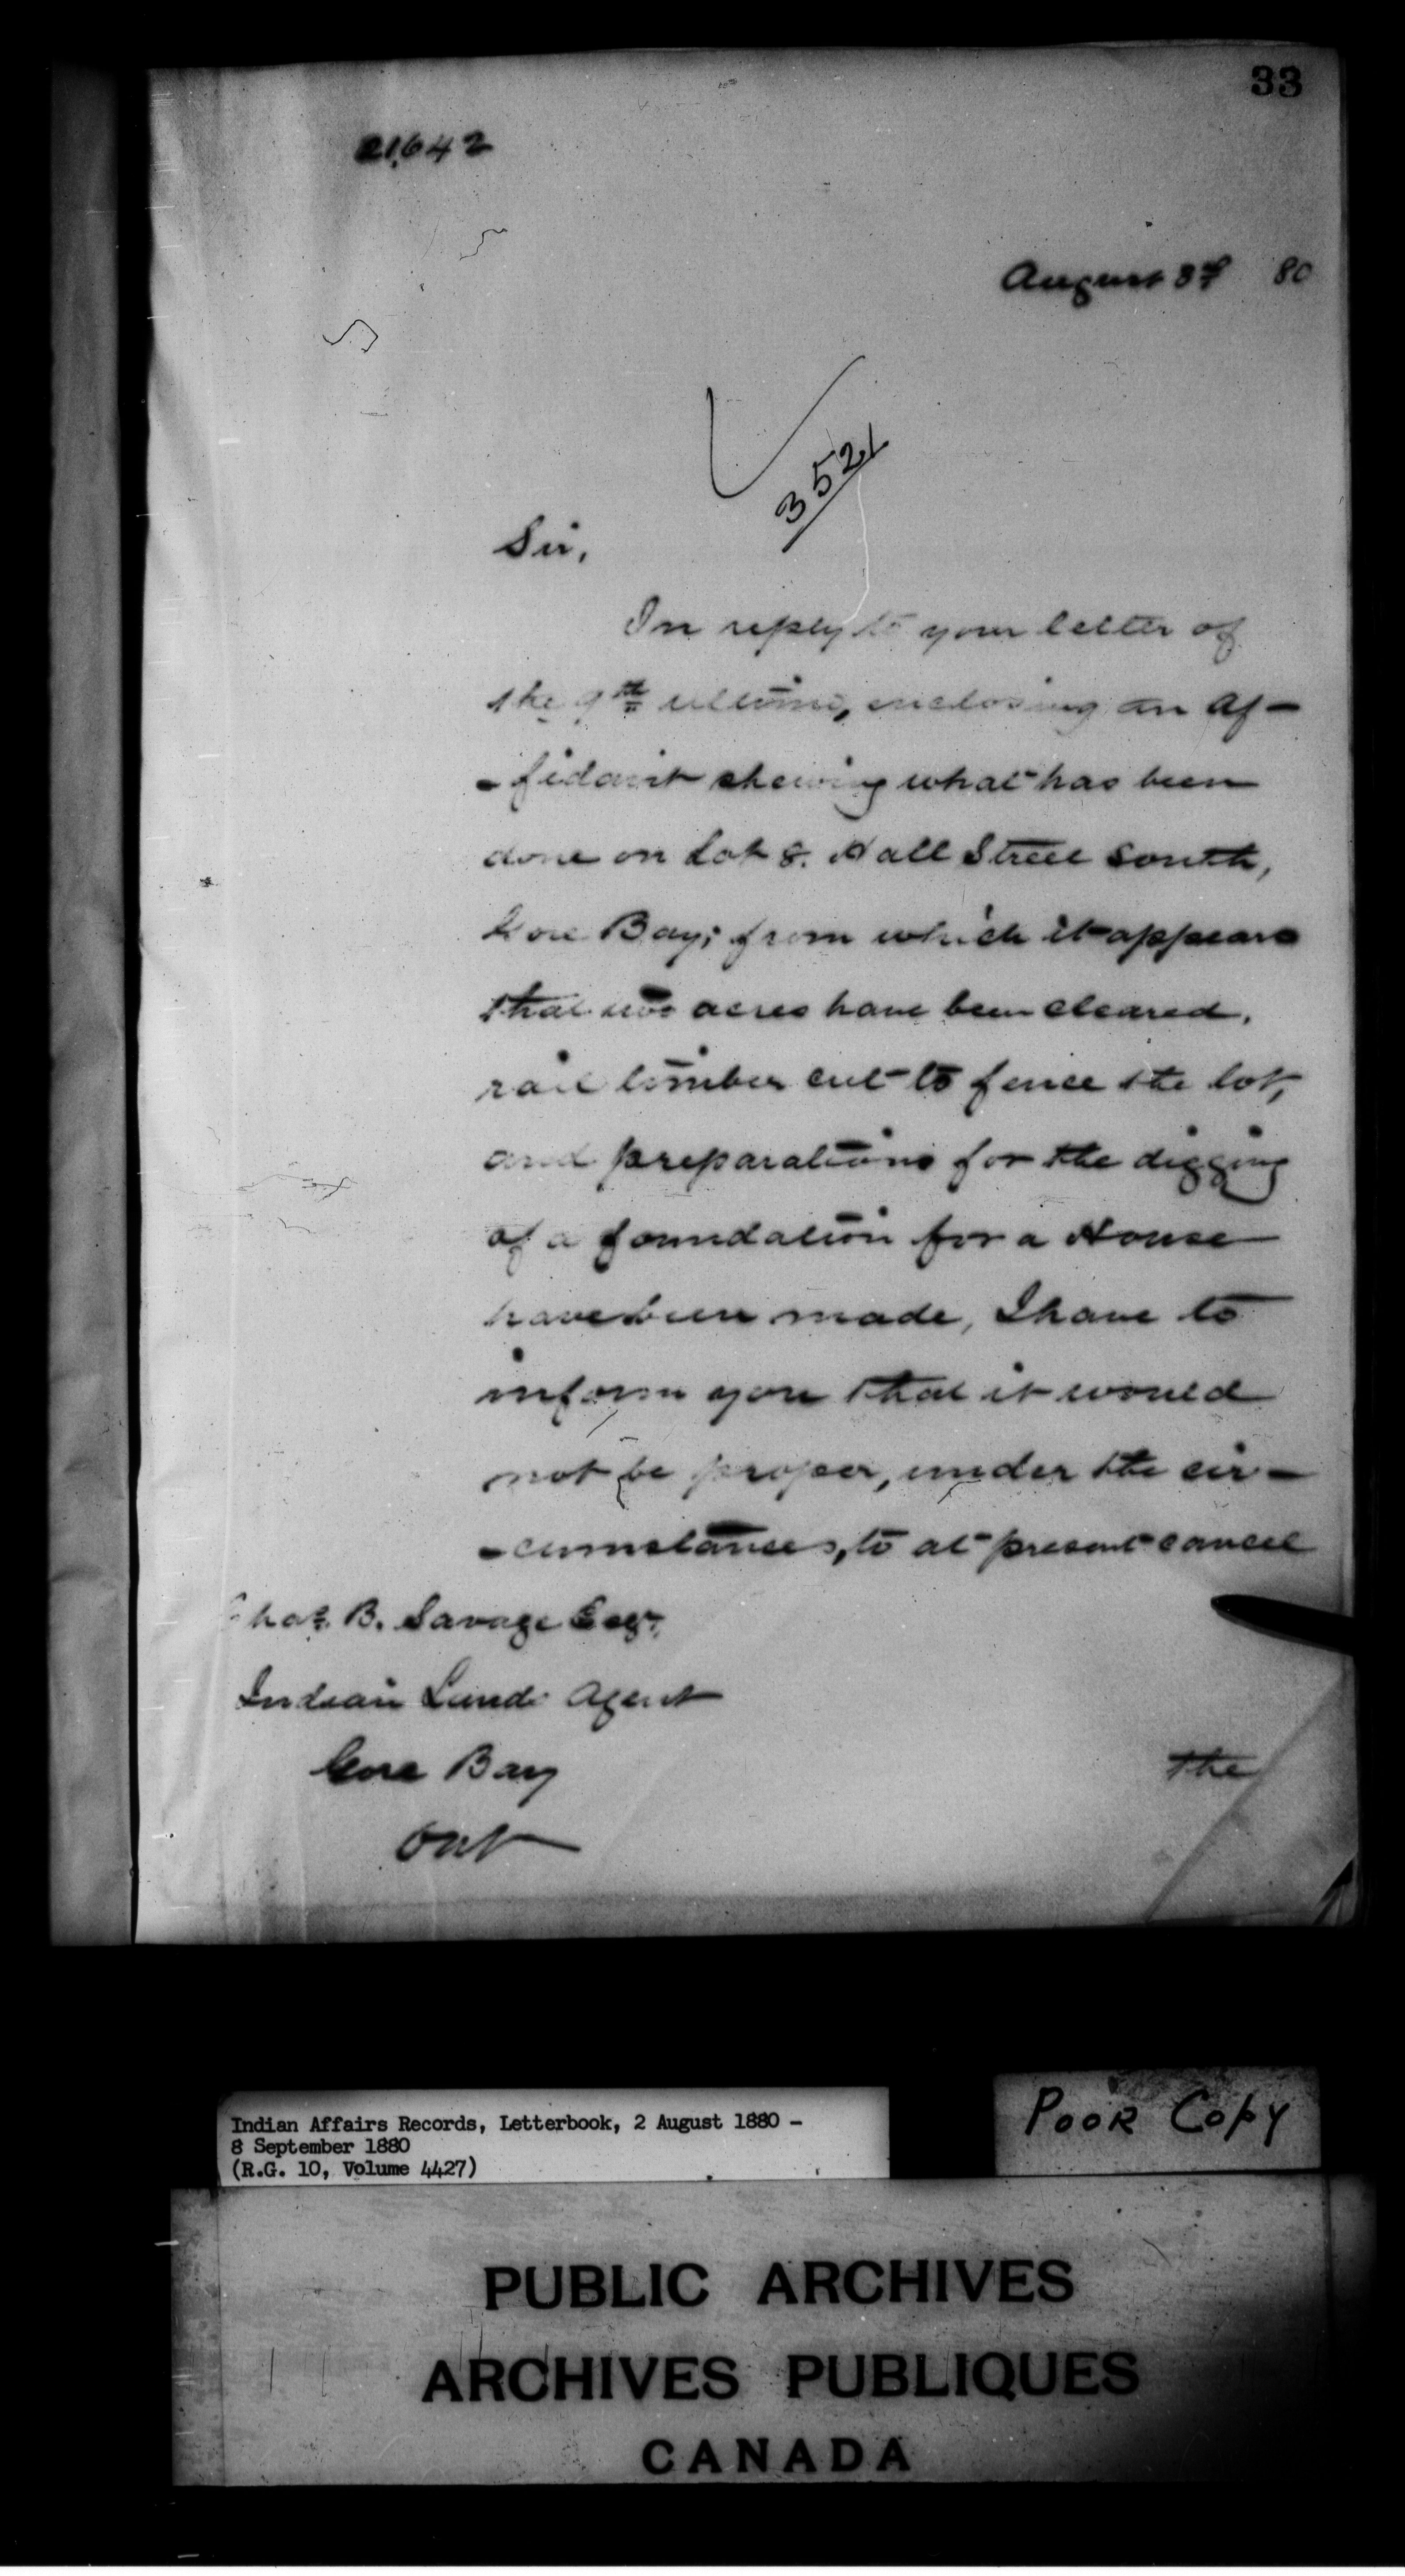 33
21,642
August 3d 80
3521
Sir,
In reply to your letter of
the 9th ultimo, enclosing an af-
-fidavit shewing what has been
done on Lot 8. Hall Street South,
Gore Bay; from which it appears
that two acres have been cleared,
rail timber cut to fence the lot,
and preparations for the digging
of a foundation for a House
have been made, I have to
inform you that it would
not be proper, under the cir-
-cumstances, to at present cancel
Chas. B. Savage Esqr.
Indian Land Agent
Gore Bay
the
Ont
Indian Affairs Records, Letterbook, 2 August 1880 -
8 September 1880
(R.G. 10, Volume 4427)
Poor Copy
PUBLIC ARCHIVES
ARCHIVES PUBLIQUES
CANADA